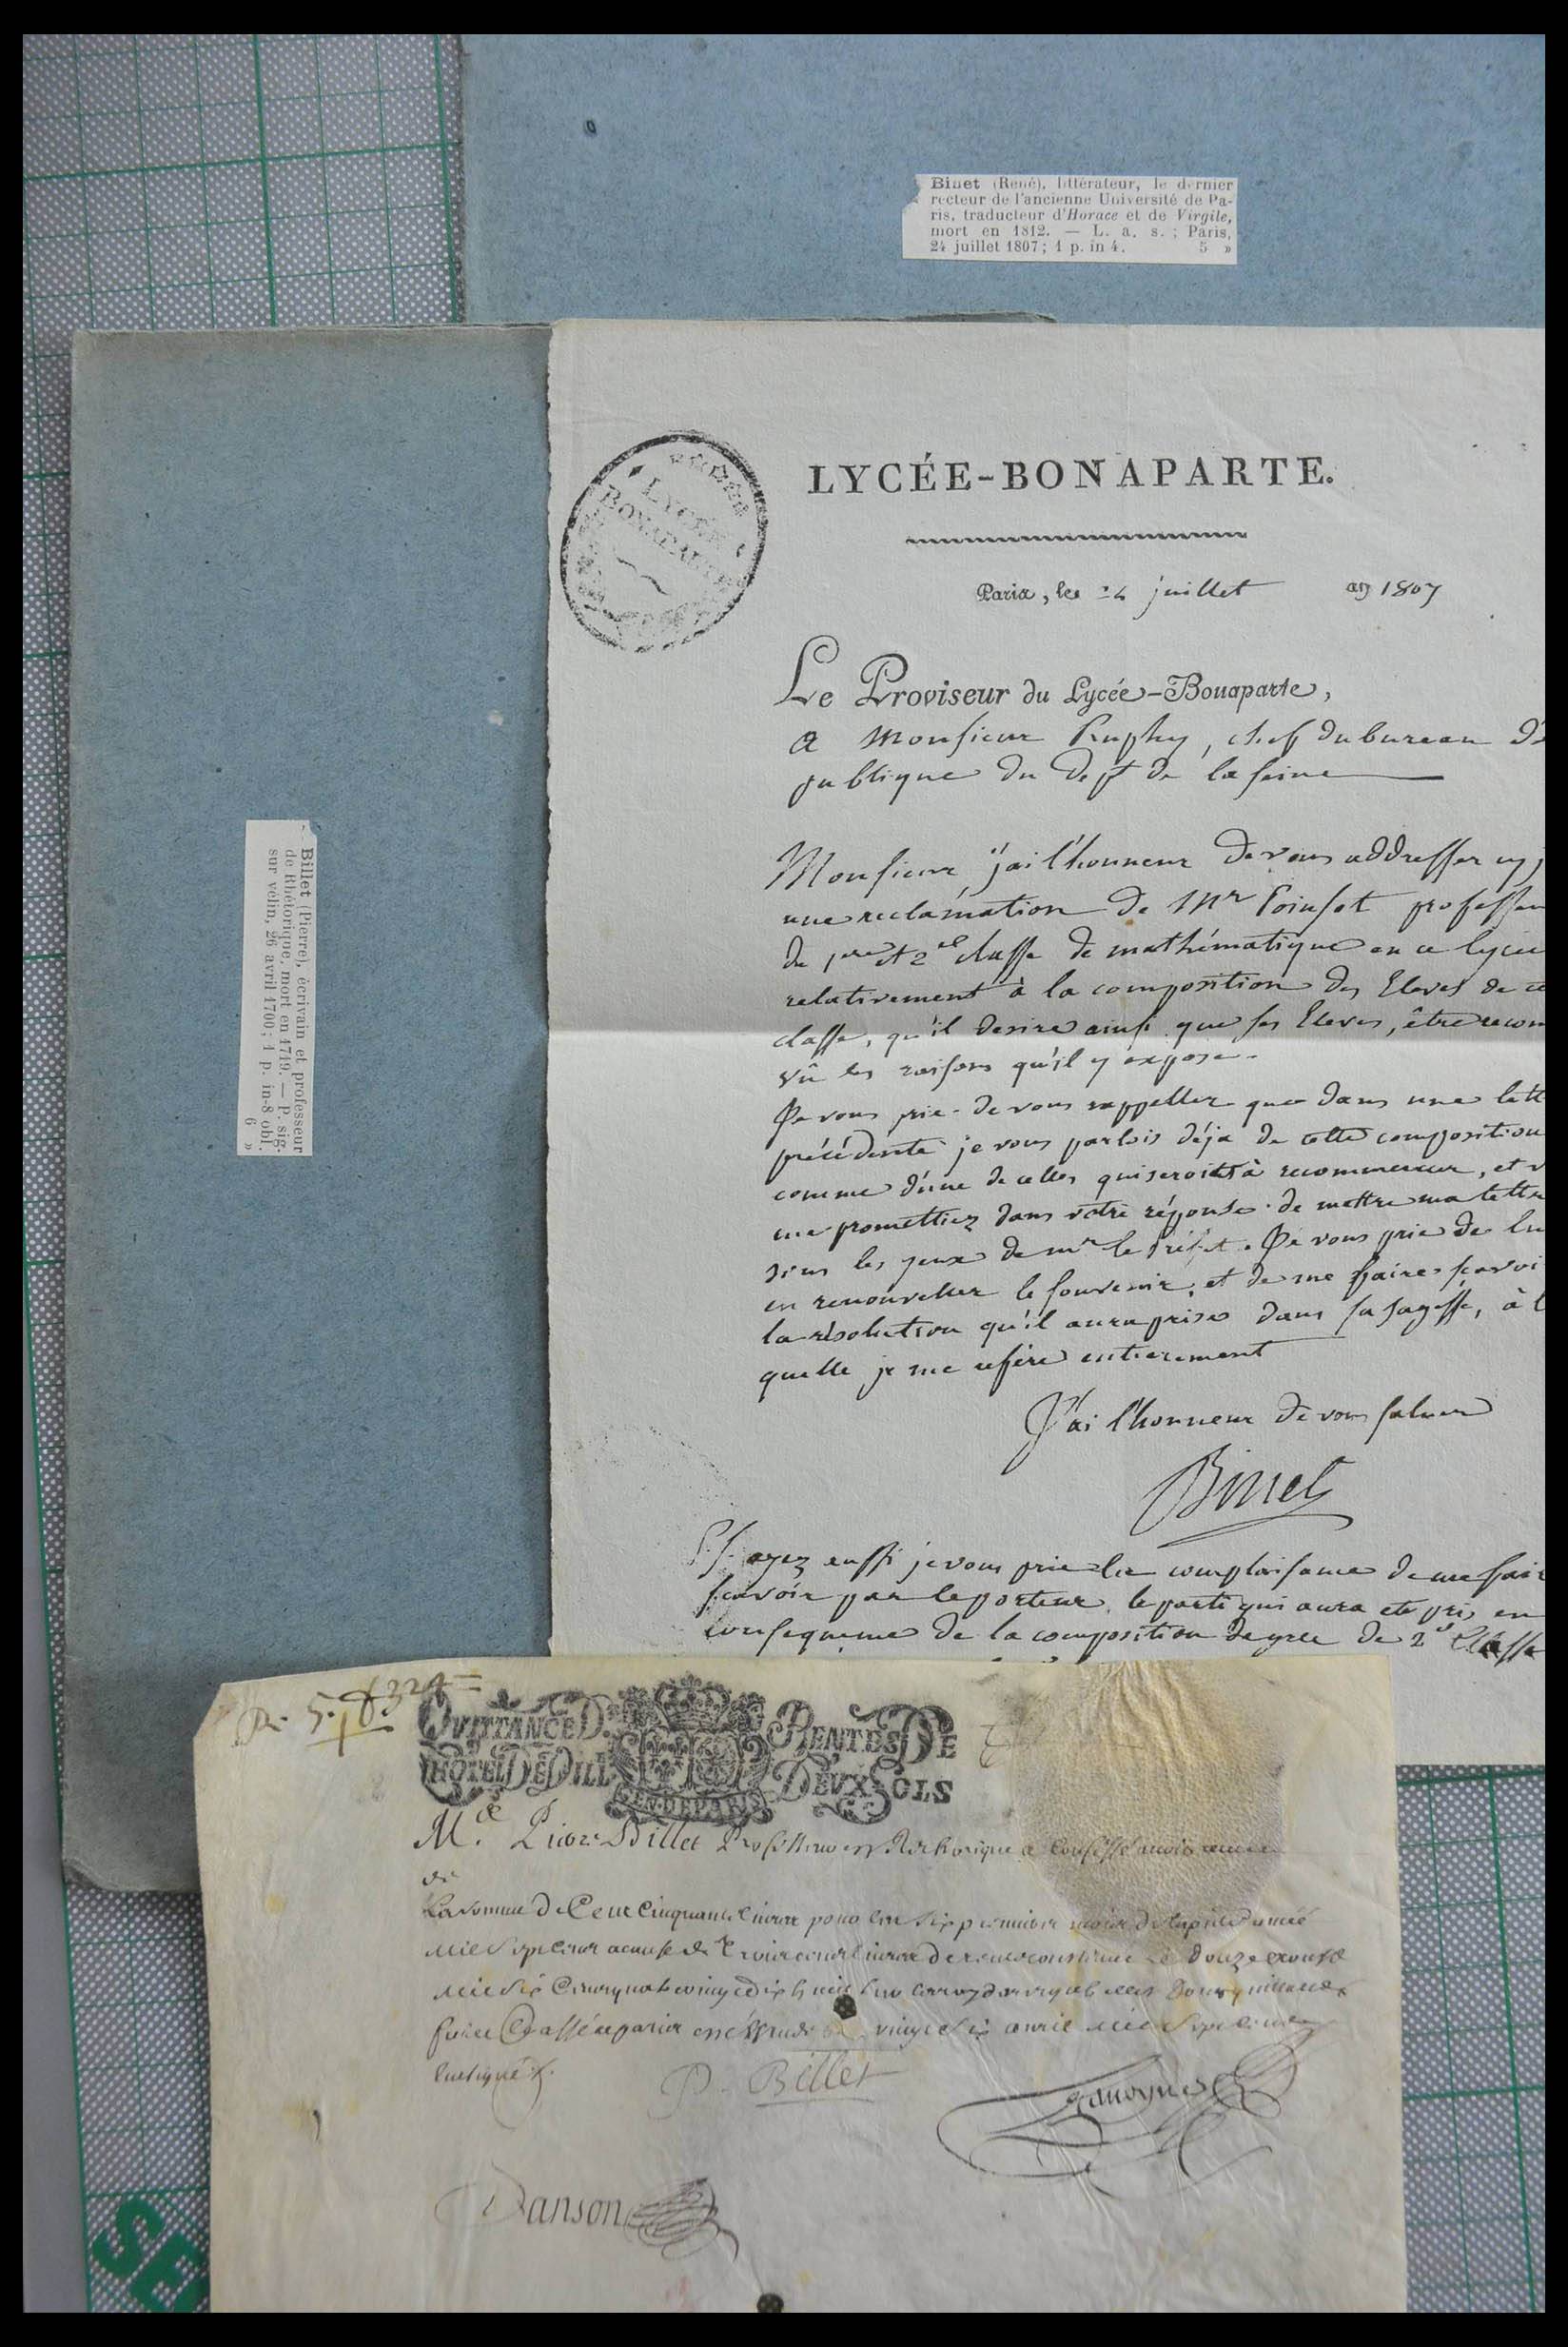 Binet (René), littérateur, le dernier
recteur de l'ancienne Université de Pa-
ris, traducteur d'Horace et de Virgile,
mort en 1812. — L. a. s. ; Paris,
24 juillet 1807 ; 1 p. in 4. 5 »
Billet (Pierre), écrivain et professeur
de Rhétorique, mort en 1719. — P. sig-
sur vélin, 26 avril 1700 ; 1 p. in-8 obl.
6 »
LYCÉE
BONAPARTE
LYCÉE-BONAPARTE.
Paris, le 24 juillet an 1807
Le Proviseur du Lycée-Bonaparte,
a Monsieur Ruphy, chef du bureau
publique du dept de la seine
Monsieur j'ai l'honneur de vous addresser
une reclamation de Mr Poinsot professeu
de 1ere et 2e classe de mathématique en ce lycée
relativement à la composition des Eleves de ce
classe, qu'il desire ainsi que ses Eleves, être recom
vû les raisons qu'il y expose.
Je vous prie de vous rappeller que dans une lett
précédente je vous parlois déja de cette composition
comme d'une de celles qui seroient à recommencer, et v
me promettiez dans votre réponse de mettre ma lettre
sous les yeux de mr le Préfet. Je vous prie de lui
en renouveller le souvenir, et de me faire sçavoi
la résolution qu'il aura prise dans sa sagesse, à l
quelle je me refere entierement
J'ai l'honneur de vous saluer
Binet
P.S. ayez aussi je vous prie la complaisance de me fair
sçavoir par le porteur le parti qui aura eté pris en
consequence de la composition de grec de 2e Classe
QVITTANCE D. RENTES DE
HOTEL DE VILL DEVX SOLS
GEN. DE PARIS
Me Pierre Billet Professeur en Rethorique a Confessé avoir receu
de
La somme de Cent Cinquante livres pour les six premiers mois de
mil sept cent a cause de Trois cent livres de rente constituée le douze
vingt six avril mil sept cent
P. Billet
Danson
SE